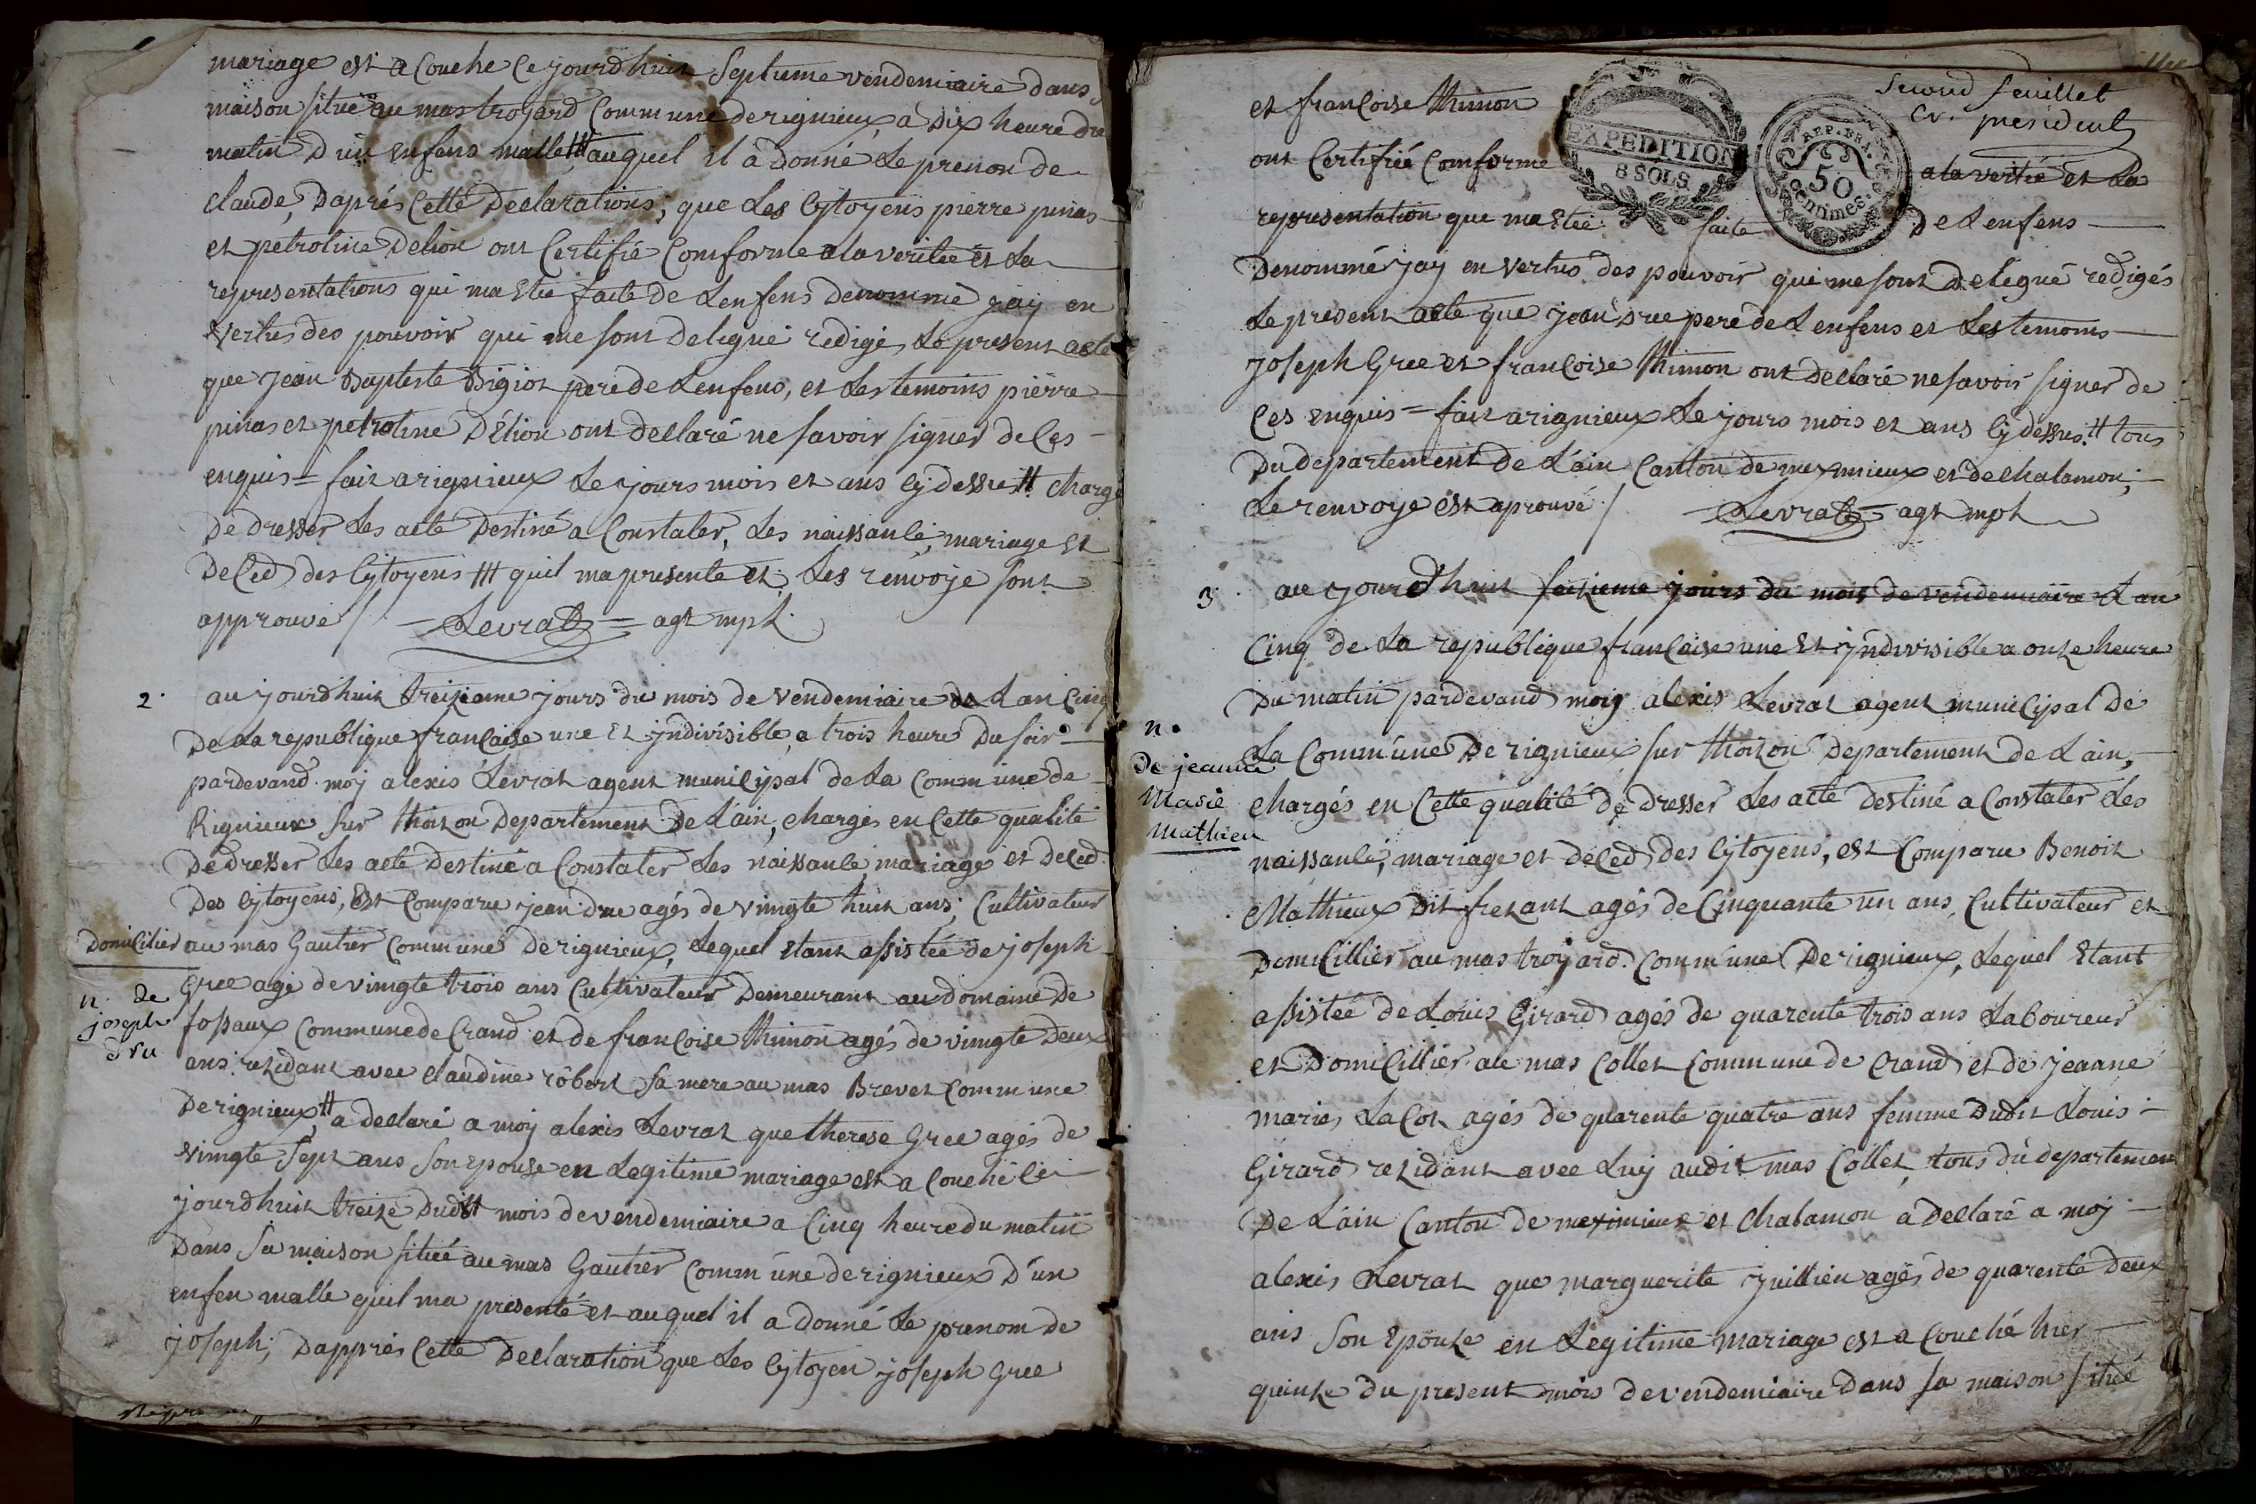 mariage est a Couche Ce jourdhuit Septieme vendemiaire dans
maison situé au mas troyard Commune de rignieux, a Dix heure du
matin D'un enfens malle ## auquel il à donné Le prenon de
Claude, Daprés Cette Declarations, que Les Cytoyens pierre pinas
et petroline Delion ont Certifié Comforme a la veritée et La
representations qui ma Etée faite de Lenfens denommé jay en
vertus des pouvoir qui me sont Delegué redigé, Le present acte
que jean Bapteste Bigiot pere de Lenfens, et Les temoins pierre
pinas et petroline Délion ont declaré ne savoir signer de Ces
enquis = fait a rignieux Le jours mois et ans Cy dessu # chargé
De dresser Les acte Destiné a Constater, Les naissance, mariage et
Deced des Cytoyens ### quil ma presente et Les renvoye sont
approuvé / = Levrat = agt mpl.
2. au jourdhuit treizieme jours du mois de vendemiaire de Lan Cinq
De La republique francaise une et jndivisible, a trois heure Du soir
pardevand moy alexis Levrat agent municipal de La Commune de
Rignieux sur thoizon Departement De Lain, chargés en Cette qualité
De dresser Les acte Destiné a Constater Les naissance, mariage et deced
Des Cytoyens, Est Comparu jean dru agés de vingte huit ans, Cultivateur
Domicilier au mas Gautier Commune de rignieux, Lequel etant assistée de joseph
Gree agé de vingte trois ans Cultivateur Demeurant au domaine De
n. de
joseph
dru
fossaux Commune de Crand et de francoise thimon agés de vingte Deux
ans rezidant avec Claudine robert sa mere au mas Brevet Commune
De rignieux, # a declaré a moy alexis Levrat que therese Gree agés de
vingte sept ans son epouse en Legitime mariage est a Couché Ce
jourdhuit treize Dudit mois de vendemiaire a Cinq heure du matin
Dans sa maison situé au mas Gautier Commune de rignieux D'un
enfen malle quil ma presenté et auquel il a donné Le prenom de
joseph; Dapprés Cette Declaration que Les Cytoyen joseph Gree
Second feuillet
Cr. president
EXPEDITION
8 SOLS
REP. FRA.
50
Centimes.
et francoise thimon
ont Certifiée Comforme a la veritée et La
representation que ma Etée faite De Lenfens
Denommé jay en vertus des pouvoir qui me sont Delegué redigés
Le present acte que jean dru pere de Lenfens et Les temoins
joseph Gree et francoise thimon ont declaré ne savoir signer de
Ces enquis = fait a rignieux Le jours mois et ans Cy dessus. # tous
Du departement de Lain Canton de meximieux et de Chalamon;
Le renvoye est aprouvé / = Levrat = agt mpl
3. au jourdhuit seizieme jours du mois de vendemiaire Lan
Cinq de La republique francaise une et jndivisible a onze heure
Du matin pardevand moy alexis Levrat agent municipal De
n.
de jeanne
Marie
Mathieu
La Commune De rignieux sur thoizon Departement de Lain,
chargés en Cette qualité de dresser Les acte destiné a Constater Les
naissance, mariage et deced des Cytoyens, est Comparu Benoit
Mathieux dit frezant agés de Cinquante un ans, Cultivateur et
Domicillier au mas troyard Commune De rignieux, Lequel etant
assistée de Louis Girard agés de quarente trois ans Laboureur
et Domicillier au mas Collet Commune de Crand et de jeanne
marie, LaCot agés de quarente quatre ans femme Dudit Louis
Girard rezidant avec Luy audit mas Collet, tous du departement
De Lain Canton de meximieux et Chalamon a Declaré a moy
alexis Levrat que marguerite juillien agés de quarente Deux
ans son Epouze en Legitime mariage est a Couché hier
quinze du present mois de vendemiaire dans sa maison situé